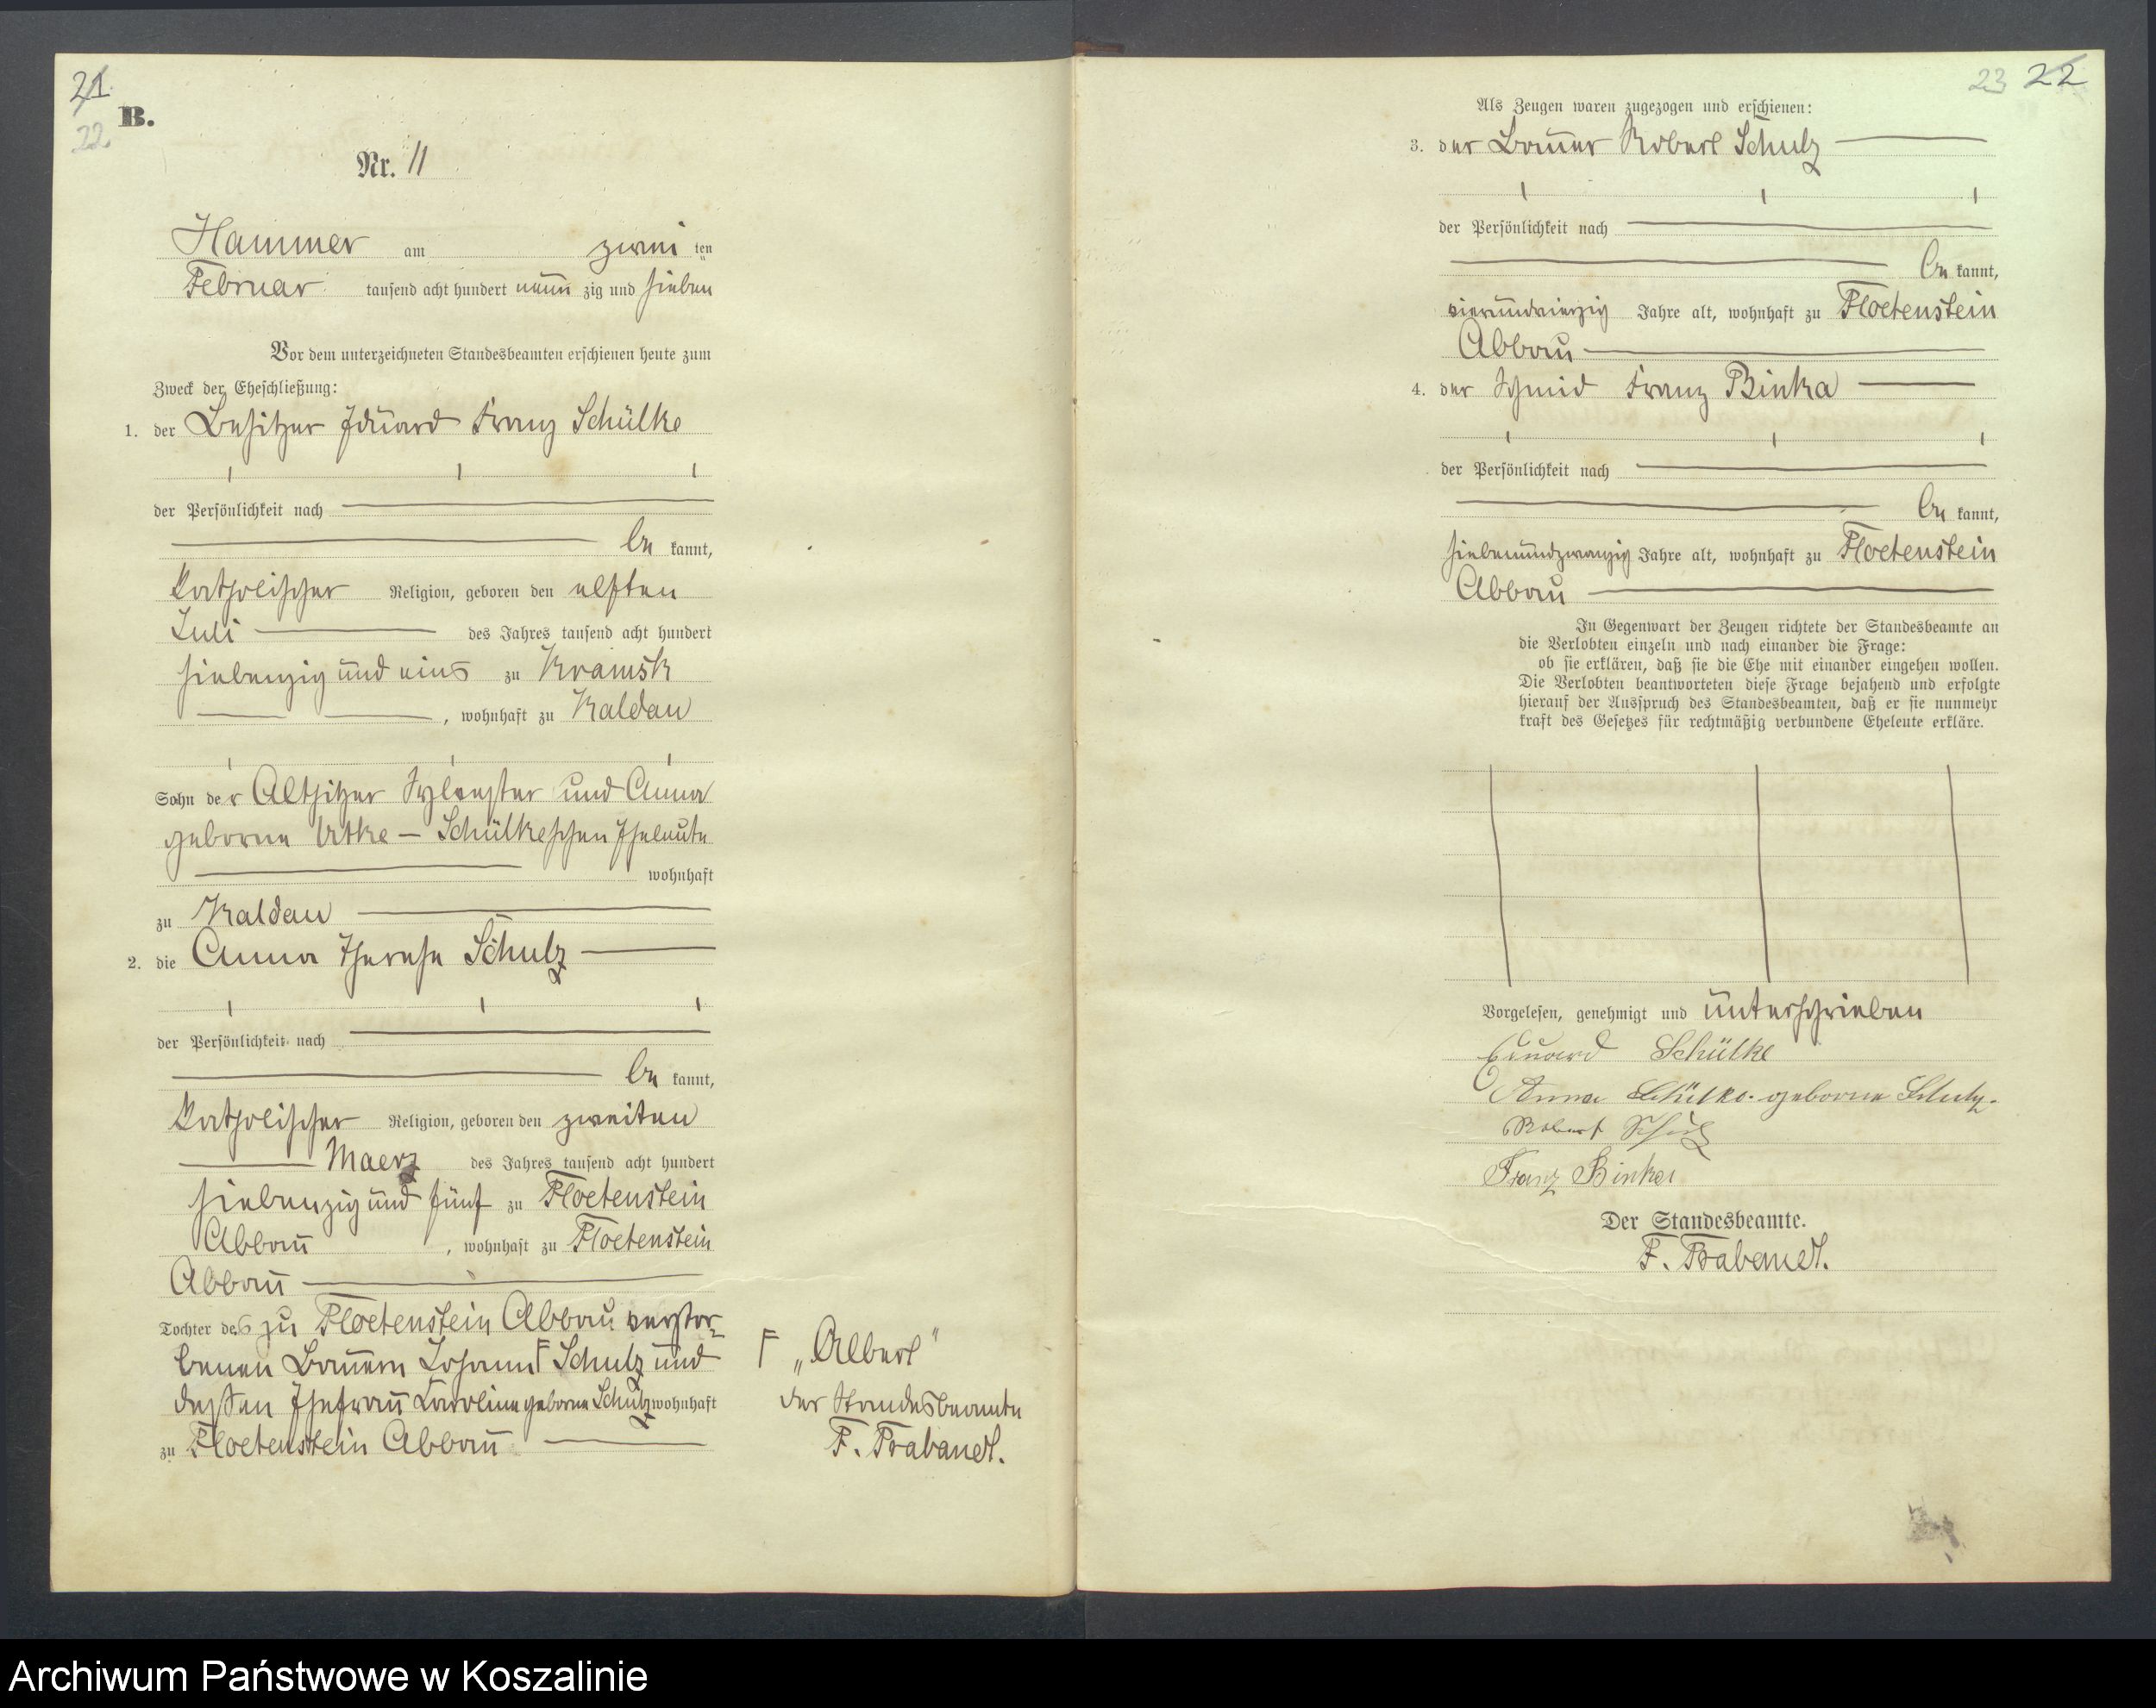 21.
22.
B.
Nr. 11
Hammer am zwei ten
Februar tausend acht hundert neun zig und sieben
Vor dem unterzeichneten Standesbeamten erschienen heute zum
Zweck der Eheschließung:
1. der Besitzer Eduard Franz Schülke
der Persönlichkeit nach
be kannt,
katholischer Religion, geboren den elften
Juli des Jahres tausend acht hundert
siebenzig und eins zu Kramsk
, wohnhaft zu Kaldau
Sohn der Altsitzer Sylvester und Anna
geborne Utke – Schülkeschen Eheleute
wohnhaft
zu Kaldau
2. die Anna Therese Schulz
der Persönlichkeit nach
be kannt,
katholischer Religion, geboren den zweiten
Maerz des Jahres tausend acht hundert
siebenzig und fünf zu Floetenstein
Abbau , wohnhaft zu Floetenstein
Abbau
Tochter des zu Floetenstein Abbau verstor-
benen Bauern Johann F Schulz und
dessen Ehefrau Karoline geborne Schulz wohnhaft
zu Floetenstein Abbau
F „Albert"
der Standesbeamte
F. Brabandt.
23 22
Als Zeugen waren zugezogen und erschienen:
3. der Bauer Robert Schulz
der Persönlichkeit nach
be kannt,
vierundvierzig Jahre alt, wohnhaft zu Floetenstein
Abbau
4. der Schmid Franz Binka
der Persönlichkeit nach
be kannt,
siebenundzwanzig Jahre alt, wohnhaft zu Floetenstein
Abbau
In Gegenwart der Zeugen richtete der Standesbeamte an
die Verlobten einzeln und nach einander die Frage:
ob sie erklären, daß sie die Ehe mit einander eingehen wollen.
Die Verlobten beantworteten diese Frage bejahend und erfolgte
hierauf der Ausspruch des Standesbeamten, daß er sie nunmehr
kraft des Gesetzes für rechtmäßig verbundene Eheleute erkläre.
Vorgelesen, genehmigt und unterschrieben
Eduard Schülke
Anna Schülke geborne Schulz.
Robert Schulz
Franz Binka
Der Standesbeamte.
F. Brabandt.
Archiwum Państwowe w Koszalinie